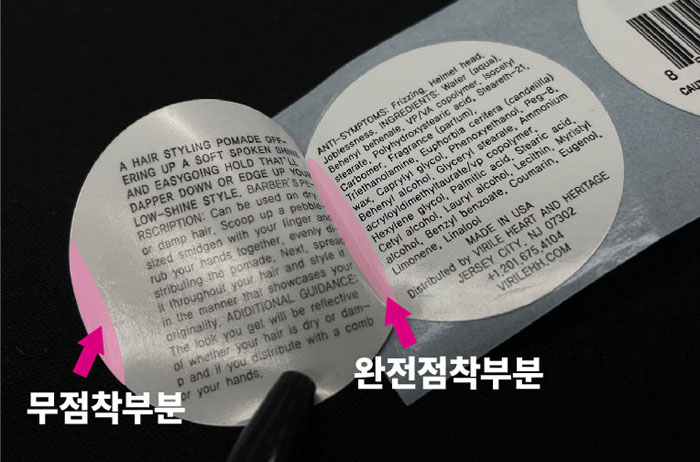 A HAIR STYLING POMADE OFF-
ERING UP A SOFT SPOKEN SHINE
AND EASYGOING HOLD THAT'LL
DAPPER DOWN OR EDGE UP YOUR
LOW-SHINE STYLE. BARBER'S PE-
RSCRIPTION: Can be used on dry
or damp hair. Scoop up a pebble-
sized smidgen with your finger and
rub your hands together, evenly di-
stributing the pomade. Next, spread
it throughout your hair and style it
in the manner that showcases your
originality. ADDITIONAL GUIDANCE:
The look you gel will be reflective
of whether your hair is dry or dam-
p and if you distribute with a comb
or your hands.
무점착부분
ANTI-SYMPTOMS: Frizzing, Helmet head,
Joblessness. INGREDIENTS: Water (aqua),
Behenyl behenate, VP/VA copolymer, Isocetyl
stearate, Polyhydroxystearic acid, Steareth-21,
Carbomer, Fragrance (parfum),
Triethanolamine, Euphorbia cerifera (candelilla)
wax, Caprylyl glycol, Phenoxyethanol, Peg-8,
Behenyl alcohol, Glyceryl stearate, Ammonium
acryloyldimethyltaurate/vp copolymer,
Hexylene glycol, Palmitic acid, Stearic acid,
Cetyl alcohol, Lauryl alcohol, Lecithin, Myristyl
alcohol, Benzyl benzoate, Coumarin, Eugenol,
Limonene, Linalool
MADE IN USA
Distributed by VIRILE HEART AND HERITAGE
JERSEY CITY, NJ 07302
+1.201.675.4104
VIRILEHH.COM
완전점착부분
8